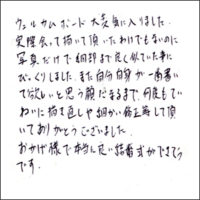 ウェルカムボード大変気に入りました。
実際会って描いて頂いたわけでもないのに
写真だけで細部まで良く似ていた事に
びっくりしました。また自分自身が一番書い
て欲しいと思う顔になるまで、何度もてい
ねいに描き直しや細かい修正等して頂
いてありがとうございました。
おかげ様で本当に良い結婚式ができそう
です。